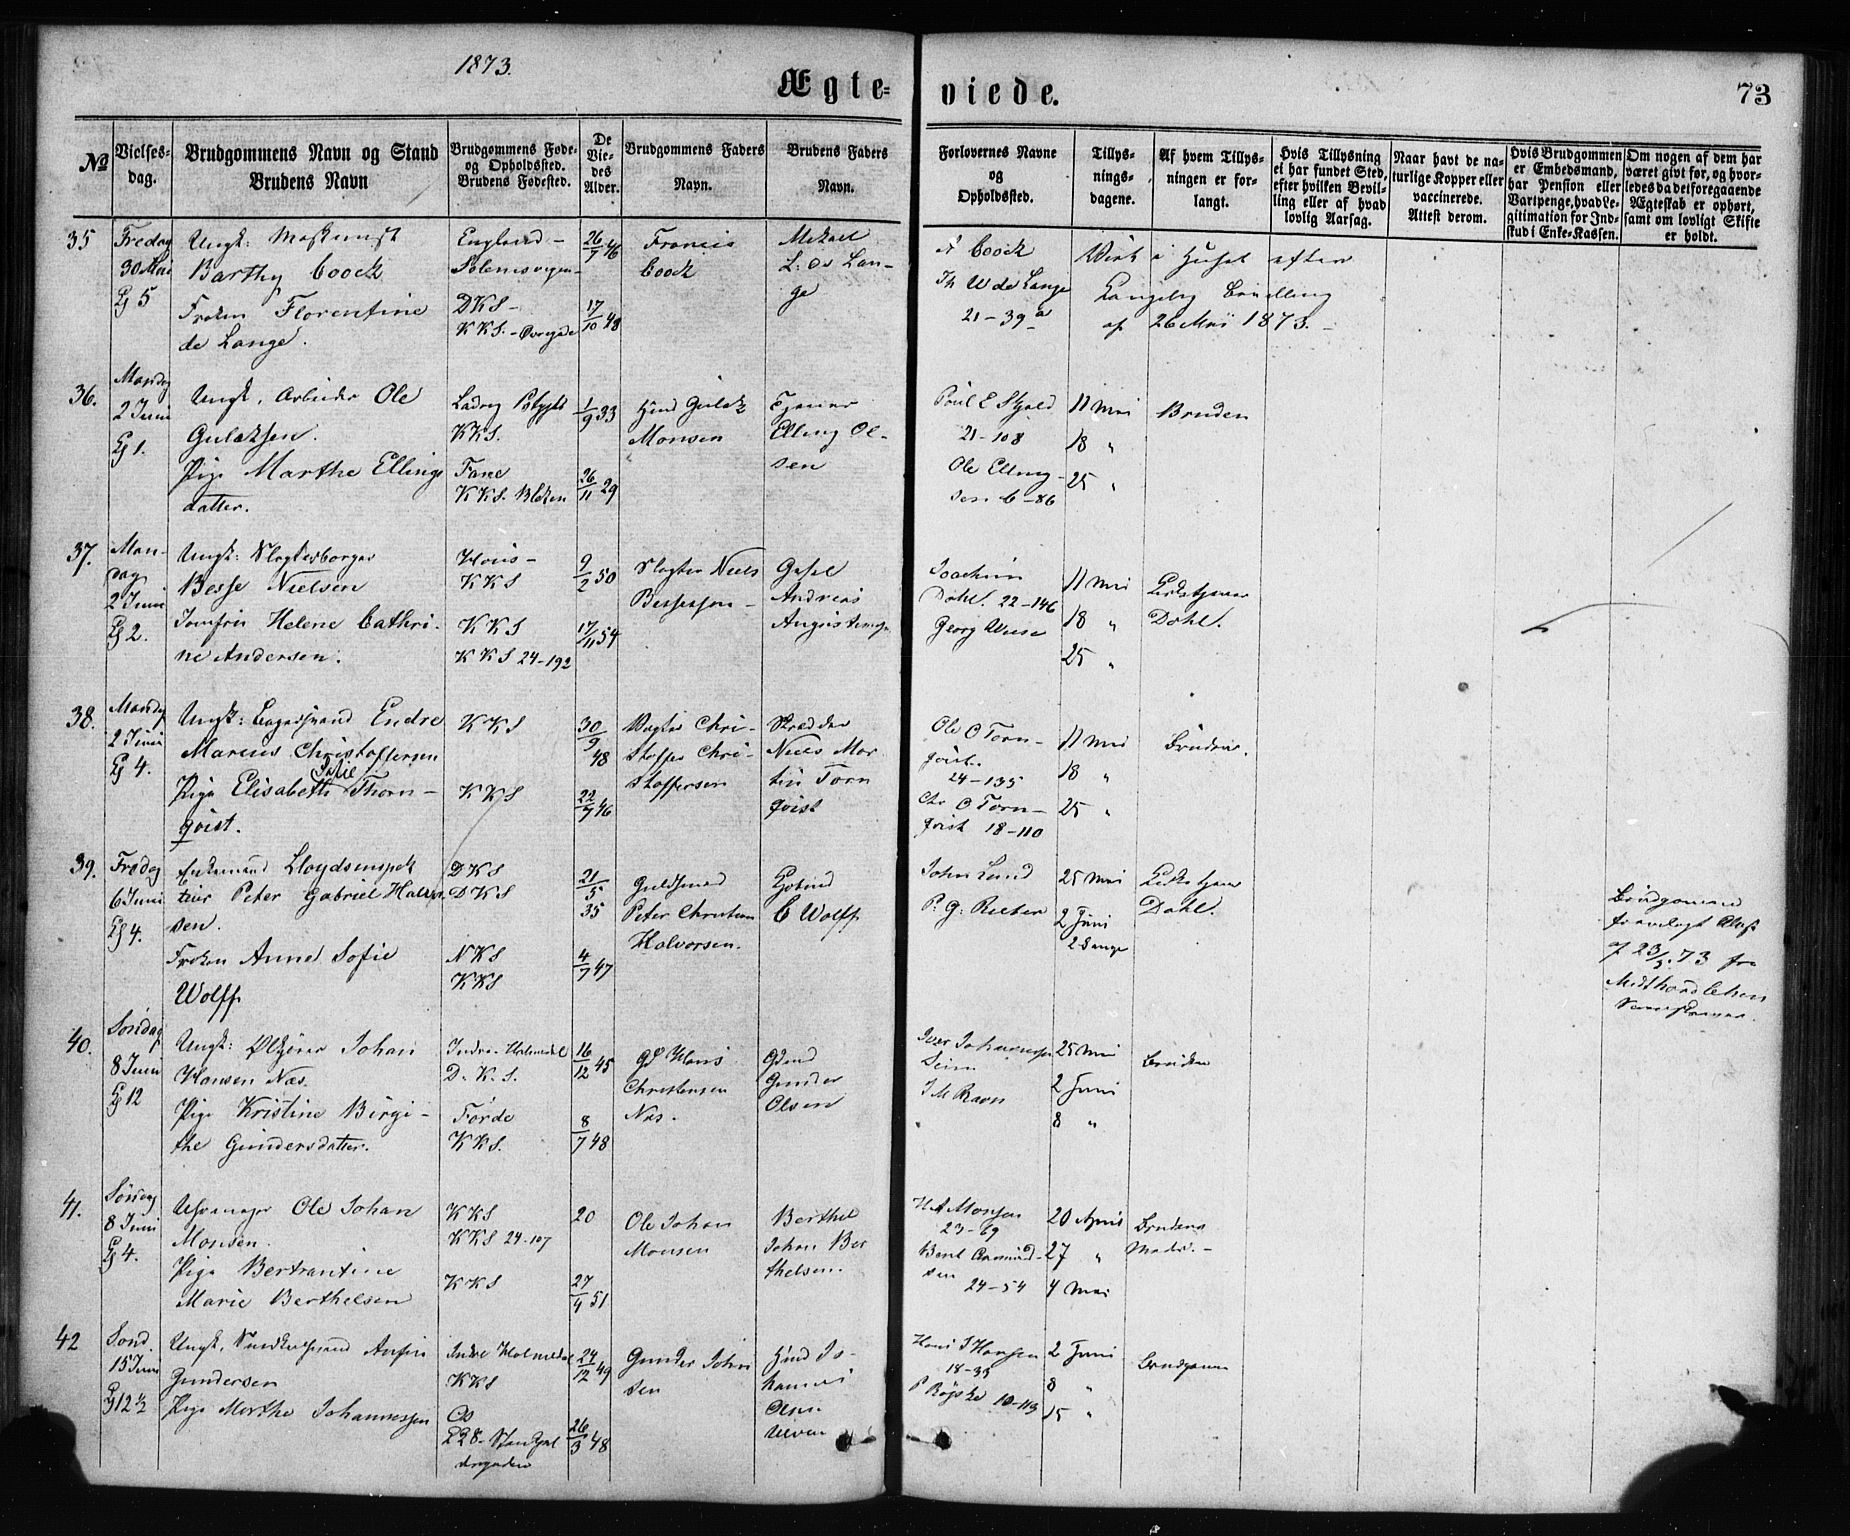 1873.
Ægte=
viede.
73
№
Vielses-
dag.
Brudgommens Navn og Stand
Brudens Navn
Brudgommens Føde-
og Opholdssted.
Brudens Fødested.
De
Vie-
des
Alder.
Brudgommens Faders
Navn.
Brudens Faders
Navn.
Forlovernes Navne
og
Opholdssted.
Tillys-
nings-
dagene.
Af hvem Tillys-
ningen er for-
langt.
Hvis Tillysning
ei har fundet Sted,
efter hvilken Bevil-
ling eller af hvad
lovlig Aarsag.
Naar havt de na-
turlige Kopper eller
vaccinerede.
Attest derom.
Hvis Brudgommen
er Embedsmand,
har Pension eller
Vartpenge, hvad Le-
gitimation for Ind-
skud i Enke-Kassen.
Om nogen af dem har
været givt før, og hvor-
ledes da det foregaaende
Ægteskab er ophørt,
samt om lovligt Skifte
er holdt.
35
Fredag
30 Mai
Kl 5
Ungk: Maskinist
Barthy Coock
Frøken Florentine
de Lange.
England -
DKS -
KKS. - Øvregade
26/7 46
17/10 48
Francis
Coock
Mikael
L: de Lan-
ge
A Coock
Th W de Lange
21 - 39 a
Viet i Huset efter
af 26 Mai 1873. -
36.
Mandag
2 Juni
Kl 1.
Ungk. Arbeider Ole
Gulaksen.
Pige Marthe Ellings
datter.
KKS.
Fane
KKS.
1/9 33
26/11 29
Hmd Gulak
Monsen
Elling Ol-
sen
Poul E Skjold
21-108
Ole Elling-
sen 6-86
11 Mai
18 "
25 "
Bruden
37.
Man-
dag
2 Juni
Kl 2.
Ungk: Slagterborger
Besse Nielsen
Jomfru Helene Cathri-
ne Andersen.
Hous -
KKS
KKS
KKS 24-192
9/2 50
17/11 54
Slagter Niels
Bessesen -
Andreas
Joachim
Dahl. 22-146
Georg Wiese
11 Mai
18 "
25 "
Kirketjener
Dahl.
38.
Mandag
2 Juni
Kl 4.
Ungk: Bagersvend Endre
Marius Christoffersen
Pige Elisabeth Sofie Thorn-
qvist.
KKS
KKS
30/9
48
22/7 46
Vægter Chri-
stoffer Chri-
stoffersen
Skrædder
Niels Mar
tin Torn
qvist
Ole C Torn-
qvist.
24-135
Chr C Torn-
qvist 18-110
11 Mai
18 "
25 "
Bruden.
39.
Fredag
6 Juni
Kl 4.
Enkemand Lloydsinspek
teur Peter Gabriel Halvor
sen.
Frøken Anne Sofie
Wolff
DKS
DKS
NKS
KKS
21/5
35
4/7 47
Guldsmed
Peter Christian
Halvorsen.
C Wolff
John Lund
P. G. Rieber
25 Mai
2 Juni
2 Gange
Kirketjener
Dahl.
Brudgommen
af 23/5. 73 fra
Midthordlehen
40.
Søndag
8 Juni
Kl 12
Ungk: Ølkjører Johan
Hansen Næs.
Pige Kristine Birgi-
the Gundersdatter.
Indre Holmedal
D. K. S.
Førde
KKS.
16/12 45
8/7 48
Gd Hans
Christensen
Næs.
Gdmd
Gunder
Olsen
Iver Johannessen
J M Ravn
25 Mai
2 Juni
8 "
Bruden
41.
Søndag
8 Juni
Kl 4.
Uhrmager Ole Johan
Monsen.
Pige Bertrantine
Marie Berthelsen
KKS
KKS 24-107
KKS
20
27/4 51
Ole Johan
Monsen
Berthel
Johan Ber
thelsen.
H A Monsen
23-69
Bent Aamund-
sen
24-54
20 April
27 "
4 Mai
Brudens
Moder. -
42
Sønd.
15 Juni
Kl 12 1/2
Ungk. Snedkersvend Anfin
Gundersen
Pige Marthe Johannessen
Indre Holmedal
KKS
Os
24/12 49
26/3 48
Gunder Johan
sen
Hmd Jo-
hannes
Olsen
Ulven
Hans J Hansen
18-35
10-113
2 Juni
8 "
15 "
Brudgommen